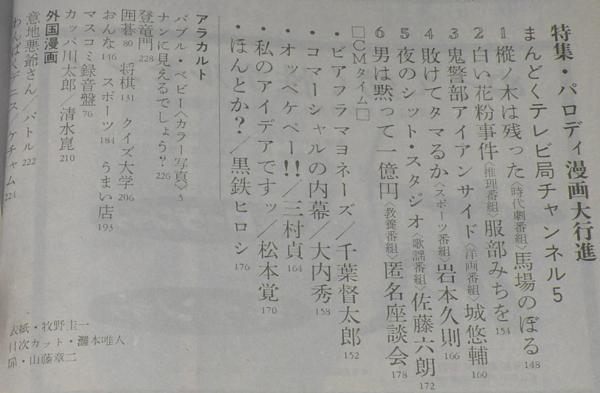 特集・パロディ漫画大行進
まんどくテレビ局チャンネル5
1 樅ノ木は残った〈時代劇番組〉馬場のぼる 148
2 白い花粉事件〈推理番組〉服部みちを 154
3 鬼警部アイアンサイド〈洋画番組〉城悠輔 160
4 敗けてタマるか〈スポーツ番組〉岩本久則 166
5 夜のシット・スタジオ〈歌謡番組〉佐藤六朗 172
6 男は黙って一億円〈教養番組〉匿名座談会 178
□CMタイム□
・ビアフラマヨネーズ／千葉督太郎 152
・コマーシャルの内幕／大内秀 158
・オッペケペー!!／三村貞 164
・私のアイデアですッ／松本覚 170
・ほんとか?／黒鉄ヒロシ 176
アラカルト
バブル・ベビー〈カラー写真〉5
ナンに見えるでしょう? 226
登竜門 228
囲碁 80 将棋 131 クイズ大学 206
おんな 146 スポーツ 184 うまい店 193
マスコミ録音盤 76
カッパ川太郎／清水崑 210
外国漫画
意地悪爺さん／バトル 222
わんぱくデニス／ケチャム 224
表紙・牧野圭一
目次カット・灘本唯人
扉・山藤章二